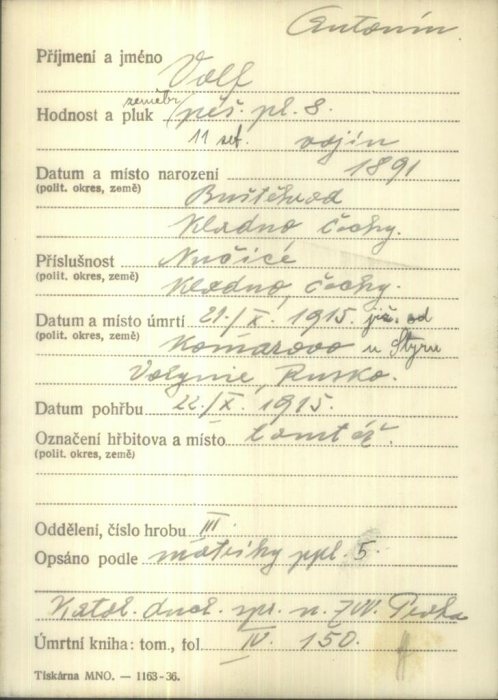 Antonín
Příjmení a jméno Volf
zeměbr.
Hodnost a pluk pěš. pl. 8.
11 set. vojín
Datum a místo narození 1891
(polit. okres, země)
Buštěhrad
Kladno, Čechy.
Příslušnost Nučice
(polit. okres, země)
Kladno, Čechy.
Datum a místo úmrtí 21./X. 1915. již. od
(polit. okres, země)
Komarovo u Styru
Volynie, Rusko.
Datum pohřbu 22./X. 1915.
Označení hřbitova a místo tamtéž.
(polit. okres, země)
Oddělení, číslo hrobu III
Opsáno podle matriky ppl. 5.
Katol. duch. spr. n. ZVV. Praha
Úmrtní kniha: tom., fol. IV. 150.
Tiskárna MNO. — 1163-36.